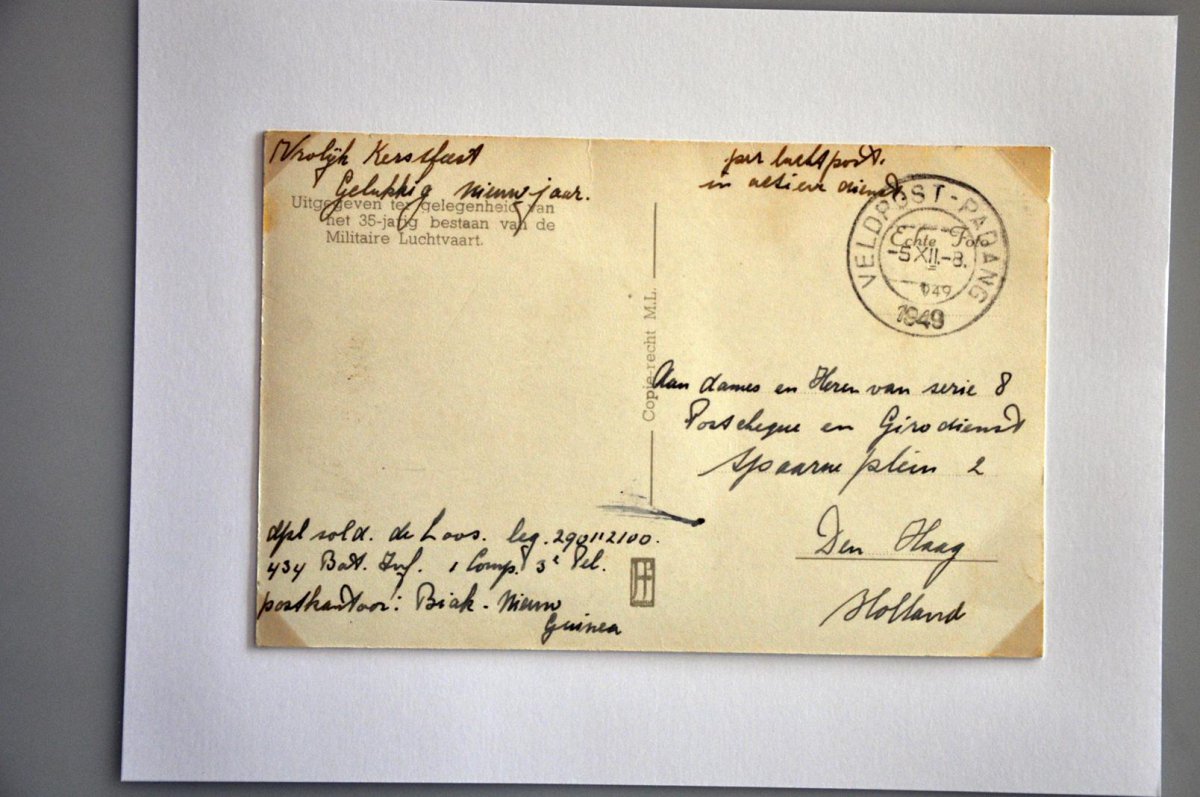 Vrolijk Kerstfeest
Gelukkig nieuwjaar.
Uitgegeven ter gelegenheid van
het 35-jarig bestaan van de
Militaire Luchtvaart.
per luchtpost.
in actieve dienst
VELDPOST-PADANG
Echte Foto
-5 XII.-8.
949
1949
Copie-recht M.L.
Aan dames en Heren van serie 8
Postcheque en Girodienst
Spaarneplein 2
Den Haag
Holland
dpl sold. de Loos. leg. 290112100.
434 Bat. Inf. 1 Comp. 3e Pel.
postkantoor: Biak-Nieuw
Guinea